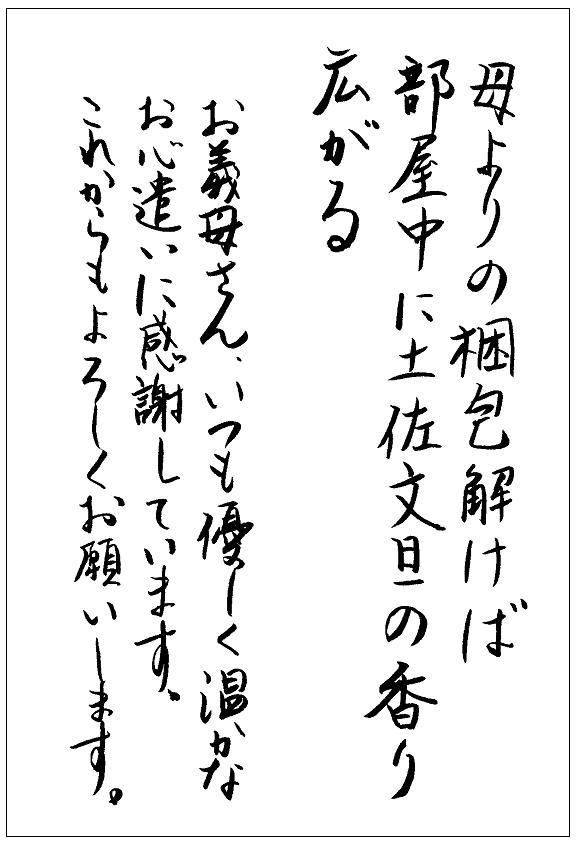 母よりの梱包解けば
部屋中に土佐文旦の香り
広がる
お義母さん、いつも優しく温かな
お心遣いに感謝しています。
これからもよろしくお願いします。